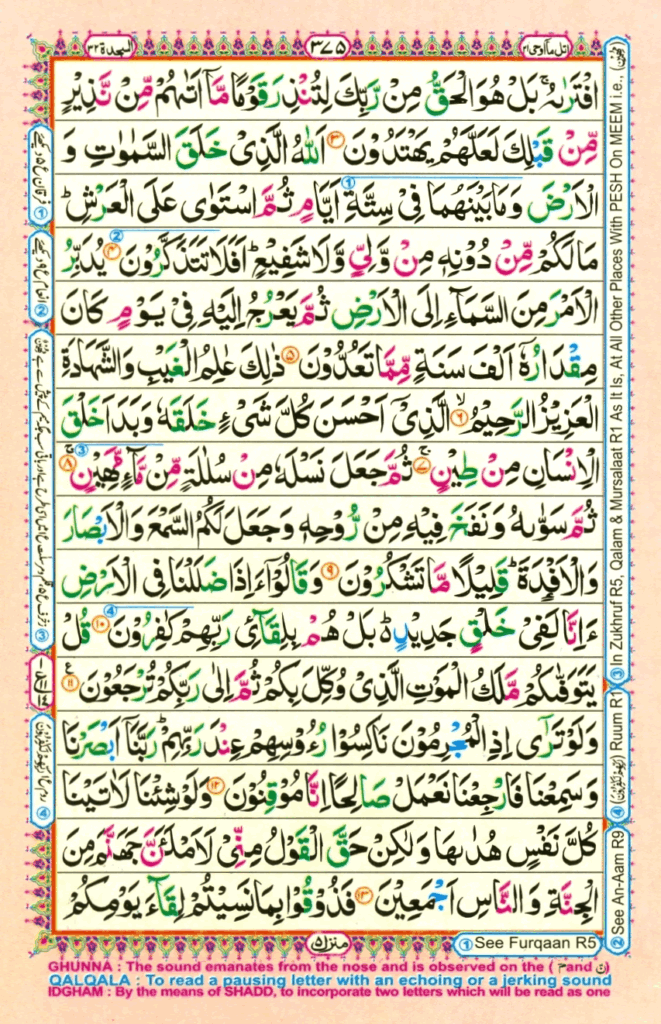 السجدة ٣٢
٣٧٥
اتل ما اوحی ٢١
افْتَرٰىهُ ۚ بَلْ هُوَ الْحَقُّ مِنْ رَّبِّكَ لِتُنْذِرَ قَوْمًا مَّاۤ اَتٰىهُمْ مِّنْ نَّذِيْرٍ
مِّنْ قَبْلِكَ لَعَلَّهُمْ يَهْتَدُوْنَ ۝٣ اَللّٰهُ الَّذِىْ خَلَقَ السَّمٰوٰتِ وَ
الْاَرْضَ وَمَا بَيْنَهُمَا فِىْ سِتَّةِ اَيَّامٍ ثُمَّ اسْتَوٰى عَلَى الْعَرْشِ ؕ
مَا لَكُمْ مِّنْ دُوْنِهٖ مِنْ وَّلِىٍّ وَّلَا شَفِيْعٍ ؕ اَفَلَا تَتَذَكَّرُوْنَ ۝٤ يُدَبِّرُ
الْاَمْرَ مِنَ السَّمَآءِ اِلَى الْاَرْضِ ثُمَّ يَعْرُجُ اِلَيْهِ فِىْ يَوْمٍ كَانَ
مِقْدَارُهٗۤ اَلْفَ سَنَةٍ مِّمَّا تَعُدُّوْنَ ۝٥ ذٰلِكَ عٰلِمُ الْغَيْبِ وَالشَّهَادَةِ
الْعَزِيْزُ الرَّحِيْمُ ۙ۝٦ الَّذِىْۤ اَحْسَنَ كُلَّ شَىْءٍ خَلَقَهٗ وَبَدَاَ خَلْقَ
الْاِنْسَانِ مِنْ طِيْنٍ ۚ۝٧ ثُمَّ جَعَلَ نَسْلَهٗ مِنْ سُلٰلَةٍ مِّنْ مَّآءٍ مَّهِيْنٍ ۚ۝٨
ثُمَّ سَوّٰىهُ وَنَفَخَ فِيْهِ مِنْ رُّوْحِهٖ وَجَعَلَ لَكُمُ السَّمْعَ وَالْاَبْصَارَ
وَالْاَفْـِٕدَةَ ؕ قَلِيْلًا مَّا تَشْكُرُوْنَ ۝٩ وَقَالُوْۤا ءَاِذَا ضَلَلْنَا فِى الْاَرْضِ
ءَاِنَّا لَفِىْ خَلْقٍ جَدِيْدٍ ؕ بَلْ هُمْ بِلِقَآئِ رَبِّهِمْ كٰفِرُوْنَ ۝١٠ قُلْ
يَتَوَفّٰىكُمْ مَّلَكُ الْمَوْتِ الَّذِىْ وُكِّلَ بِكُمْ ثُمَّ اِلٰى رَبِّكُمْ تُرْجَعُوْنَ ۝١١
وَلَوْ تَرٰٓى اِذِ الْمُجْرِمُوْنَ نَاكِسُوْا رُءُوْسِهِمْ عِنْدَ رَبِّهِمْ ؕ رَبَّنَاۤ اَبْصَرْنَا
وَسَمِعْنَا فَارْجِعْنَا نَعْمَلْ صَالِحًا اِنَّا مُوْقِنُوْنَ ۝١٢ وَلَوْ شِئْنَا لَاٰتَيْنَا
كُلَّ نَفْسٍ هُدٰىهَا وَلٰكِنْ حَقَّ الْقَوْلُ مِنِّىْ لَاَمْلَئَنَّ جَهَنَّمَ مِنَ
الْجِنَّةِ وَالنَّاسِ اَجْمَعِيْنَ ۝١٣ فَذُوْقُوْا بِمَا نَسِيْتُمْ لِقَآءَ يَوْمِكُمْ
منزل ٥
① See Furqaan R5
② See An-Aam R9
④ Ruum R1
③ In Zukhruf R5, Qalam & Mursalaat R1 As It Is, At All Other Places With PESH On MEEM i.e.,
GHUNNA : The sound emanates from the nose and is observed on the ( م and ن)
QALQALA : To read a pausing letter with an echoing or a jerking sound
IDGHAM : By the means of SHADD, to incorporate two letters which will be read as one